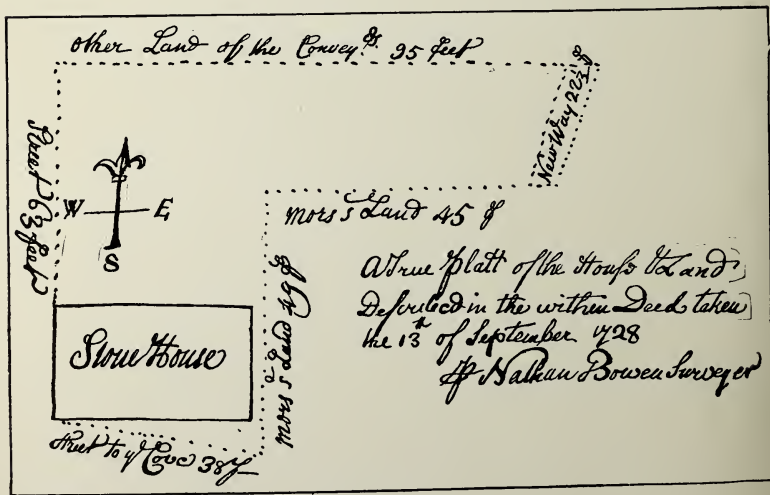 other Land of the Convey.rs 95 feet
New Way 22½ f
Street 63 feet
W E
S
Mors's Land 45 f
Mors's Land 49 f
A True Platt of the House & Land
Described in the within Deed taken
the 13th of September 1728
Stone House
⅌ Nathan Bowen Surveyer
Street to ye Cove 38 f